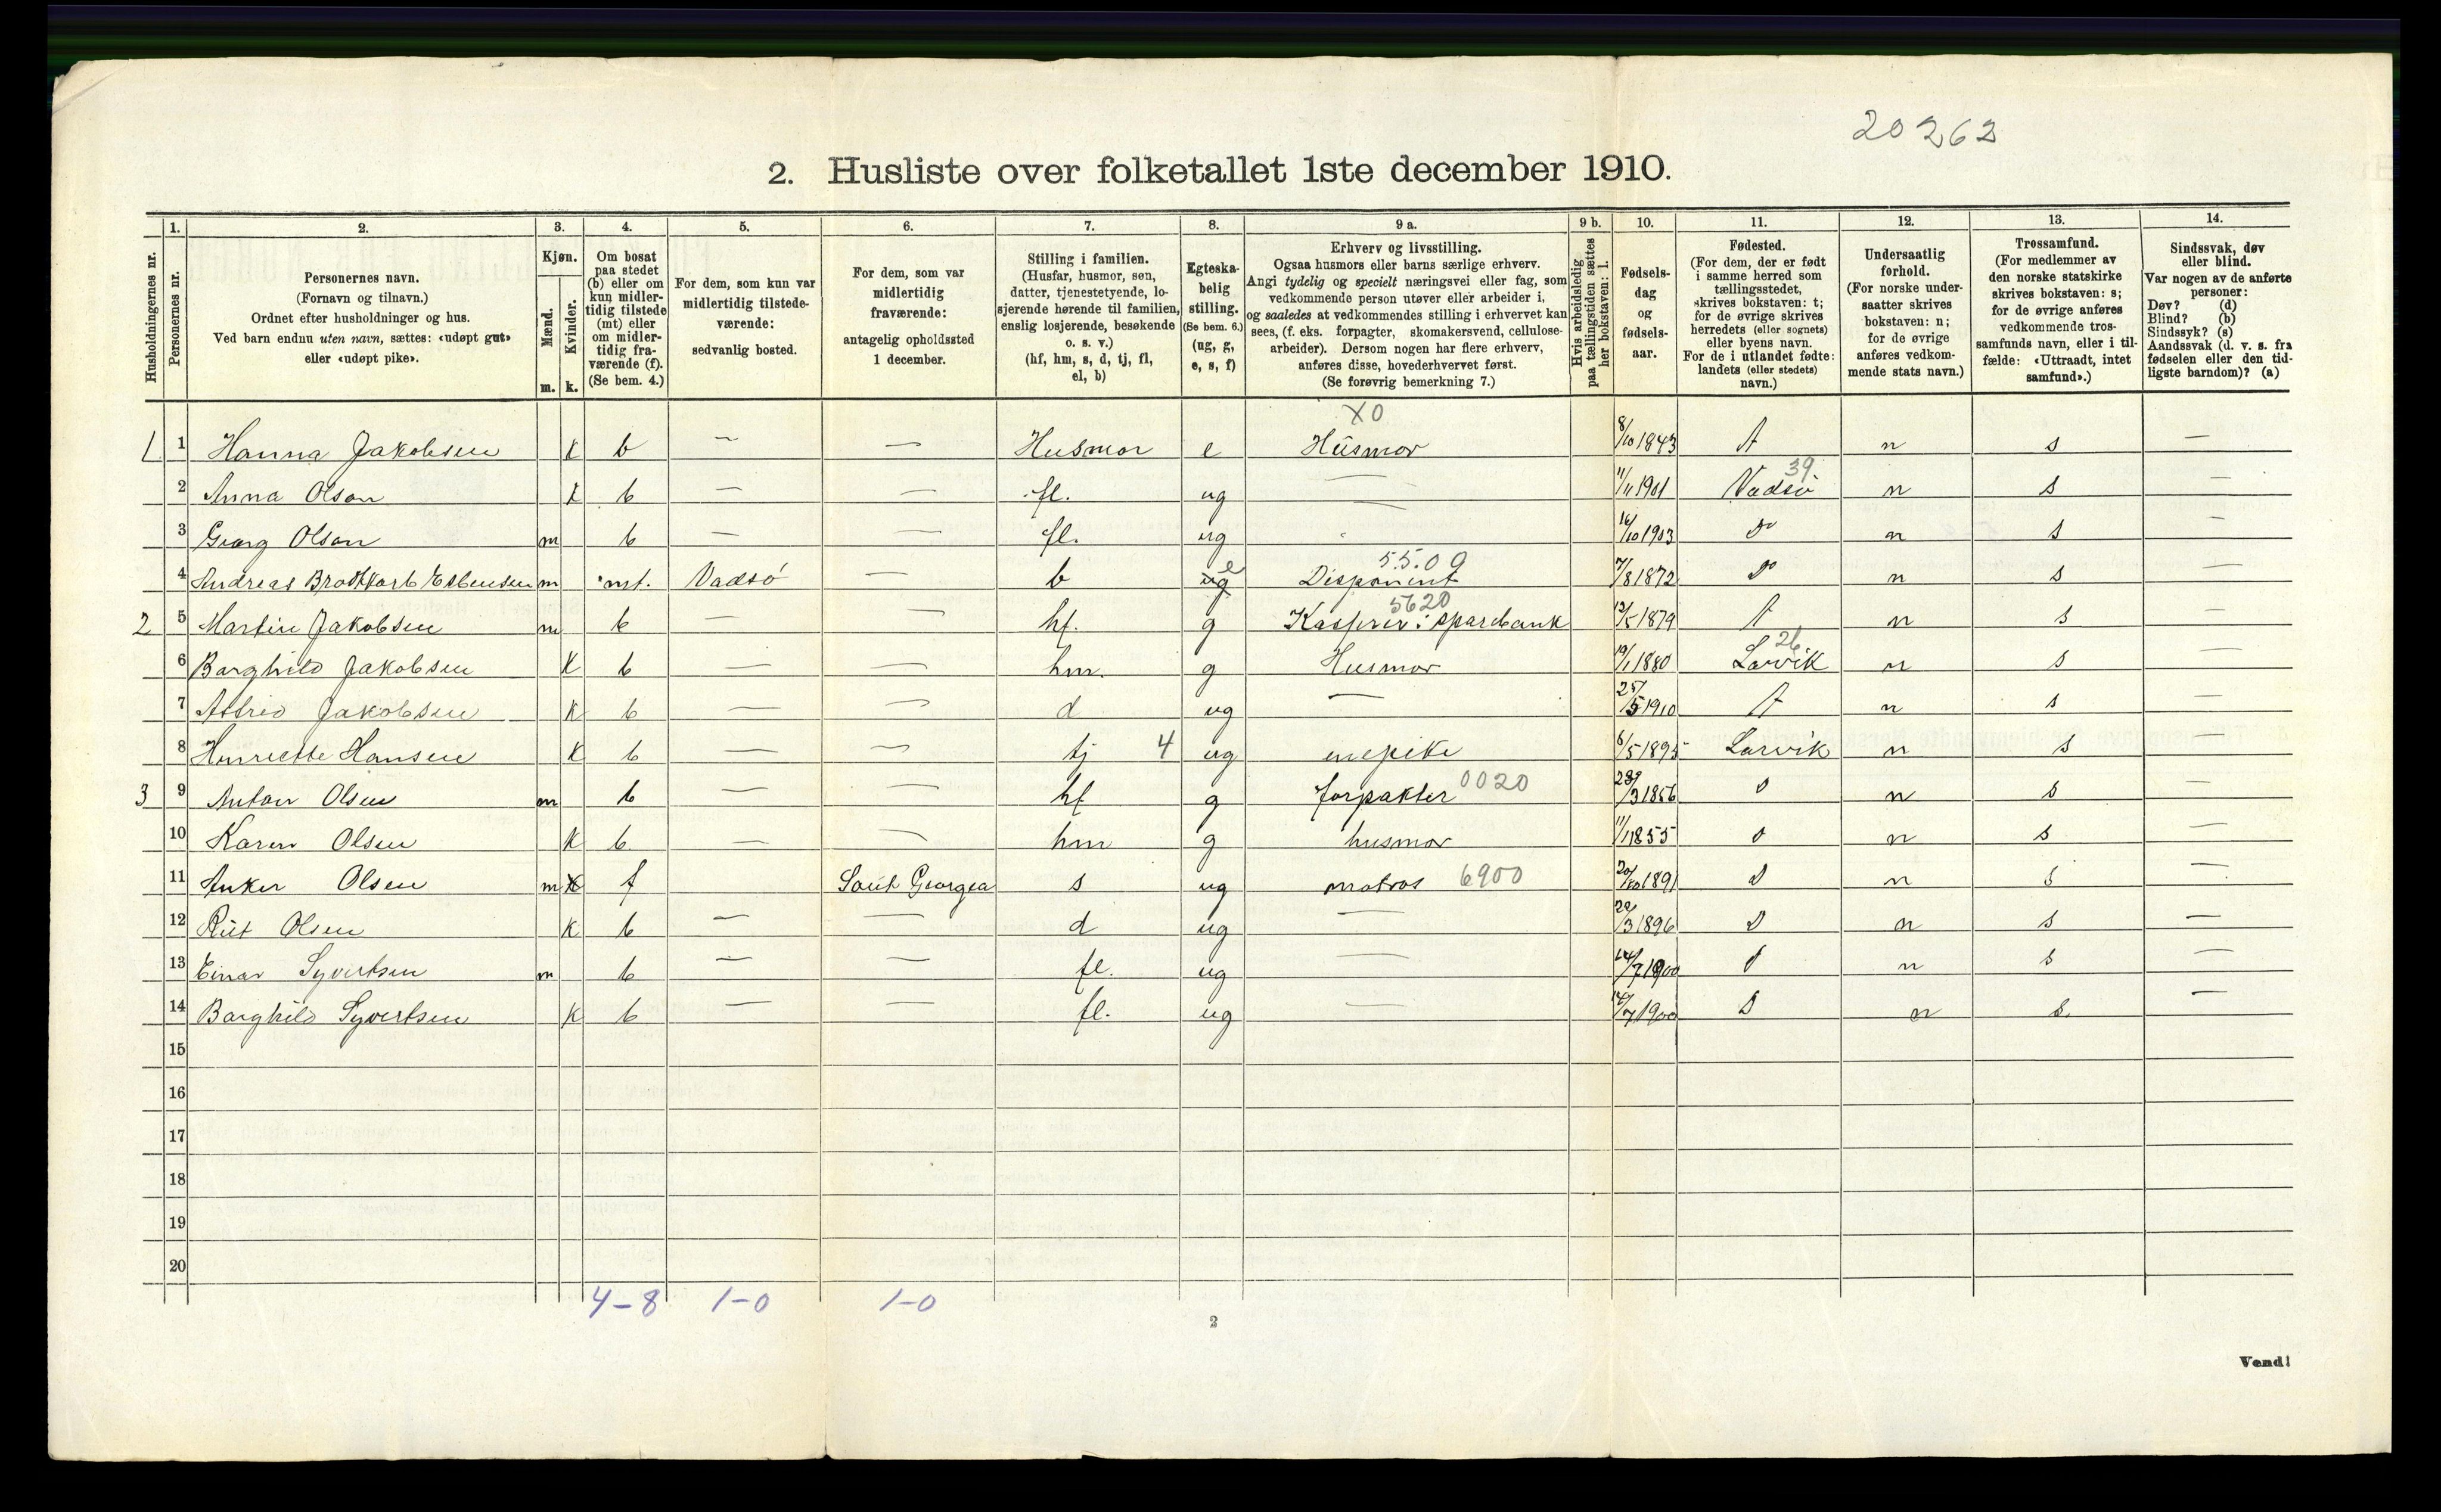 20262
2. Husliste over folketallet 1ste december 1910.
1. 2. 3. 4. 5. 6. 7. 8. 9 a. 9 b. 10. 11. 12. 13. 14.
Husholdningernes nr.
Personernes nr.
Personernes navn.
(Fornavn og tilnavn.)
Ordnet efter husholdninger og hus.
Ved barn endnu uten navn, sættes: «udøpt gut»
eller «udøpt pike».
Kjøn.
Mænd.
m.
Kvinder.
k.
Om bosat
paa stedet
(b) eller om
kun midler-
tidig tilstede
(mt) eller
om midler-
tidig fra-
værende (f).
(Se bem. 4.)
For dem, som kun var
midlertidig tilstede-
værende:
sedvanlig bosted.
For dem, som var
midlertidig
fraværende:
antagelig opholdssted
1 december.
Stilling i familien.
(Husfar, husmor, søn,
datter, tjenestetyende, lo-
sjerende hørende til familien,
enslig losjerende, besøkende
o. s. v.)
(hf, hm, s, d, tj, fl,
el, b)
Egteska-
belig
stilling.
(Se bem. 6.)
(ug, g,
e, s, f)
Erhverv og livsstilling.
Ogsaa husmors eller barns særlige erhverv.
Angi tydelig og specielt næringsvei eller fag, som
vedkommende person utøver eller arbeider i,
og saaledes at vedkommendes stilling i erhvervet kan
sees, (f. eks. forpagter, skomakersvend, cellulose-
arbeider). Dersom nogen har flere erhverv,
anføres disse, hovederhvervet først.
(Se forøvrig bemerkning 7.)
Hvis arbeidsledig
paa tællingstiden sættes
her bokstaven: l.
Fødsels-
dag
og
fødsels-
aar.
Fødested.
(For dem, der er født
i samme herred som
tællingsstedet,
skrives bokstaven: t;
for de øvrige skrives
herredets (eller sognets)
eller byens navn.
For de i utlandet fødte:
landets (eller stedets)
navn.)
Undersaatlig
forhold.
(For norske under-
saatter skrives
bokstaven: n;
for de øvrige
anføres vedkom-
mende stats navn.)
Trossamfund.
(For medlemmer av
den norske statskirke
skrives bokstaven: s;
for de øvrige anføres
vedkommende tros-
samfunds navn, eller i til-
fælde: «Uttraadt, intet
samfund».)
Sindssvak, døv
eller blind.
Var nogen av de anførte
personer:
Døv? (d)
Blind? (b)
Sindssyk? (s)
Aandssvak (d. v. s. fra
fødselen eller den tid-
ligste barndom)? (a)
X0
1 1 Hanna Jakobsen k b — — Husmor e Husmor 8/10 1843 n s —
39
2 Anna Olson k b — — fl. ug — 11/11 1901 Vadsö n s —
3 Georg Olson m b — — fl. ug 16/10 1903 Do n s —
5.5.09
4 Andreas Esbensen m mt. Vadsö — b ug e Disponent 7/8 1872 Do n s —
5620
2 5 Martin Jakobsen m b — — hf. g Kasserer i sparebank 12/5 1879 n s —
26
6 Borghild Jakobsen k b — — hm. g Husmor 19/1 1880 Larvik n s —
7 Astrid Jakobsen k b — — d ug — 25/5 1910 n s —
8 Henriette Hansen k b — — tj 4 ug enepike 6/5 1895 Larvik n s —
3 9 Anton Olsen m b — — hf g forpakter 0020 28/3 1856 n s —
10 Karen Olsen k b — — hm g husmor 11/1 1855 n s —
11 Anker Olsen m k f Sout Georgea s ug matros 6900 20/10 1891 n s —
12 Rut Olsen k b — — d ug — 22/3 1896 n s —
13 Einar Syvertsen m b — — fl. ug — 14/7 1900 n s —
14 Borghild Syvertsen k b — — fl. ug — 14/7 1900 n s. —
15
16
17
18
19
20
4-8 1-0 1-0
2
Vend!